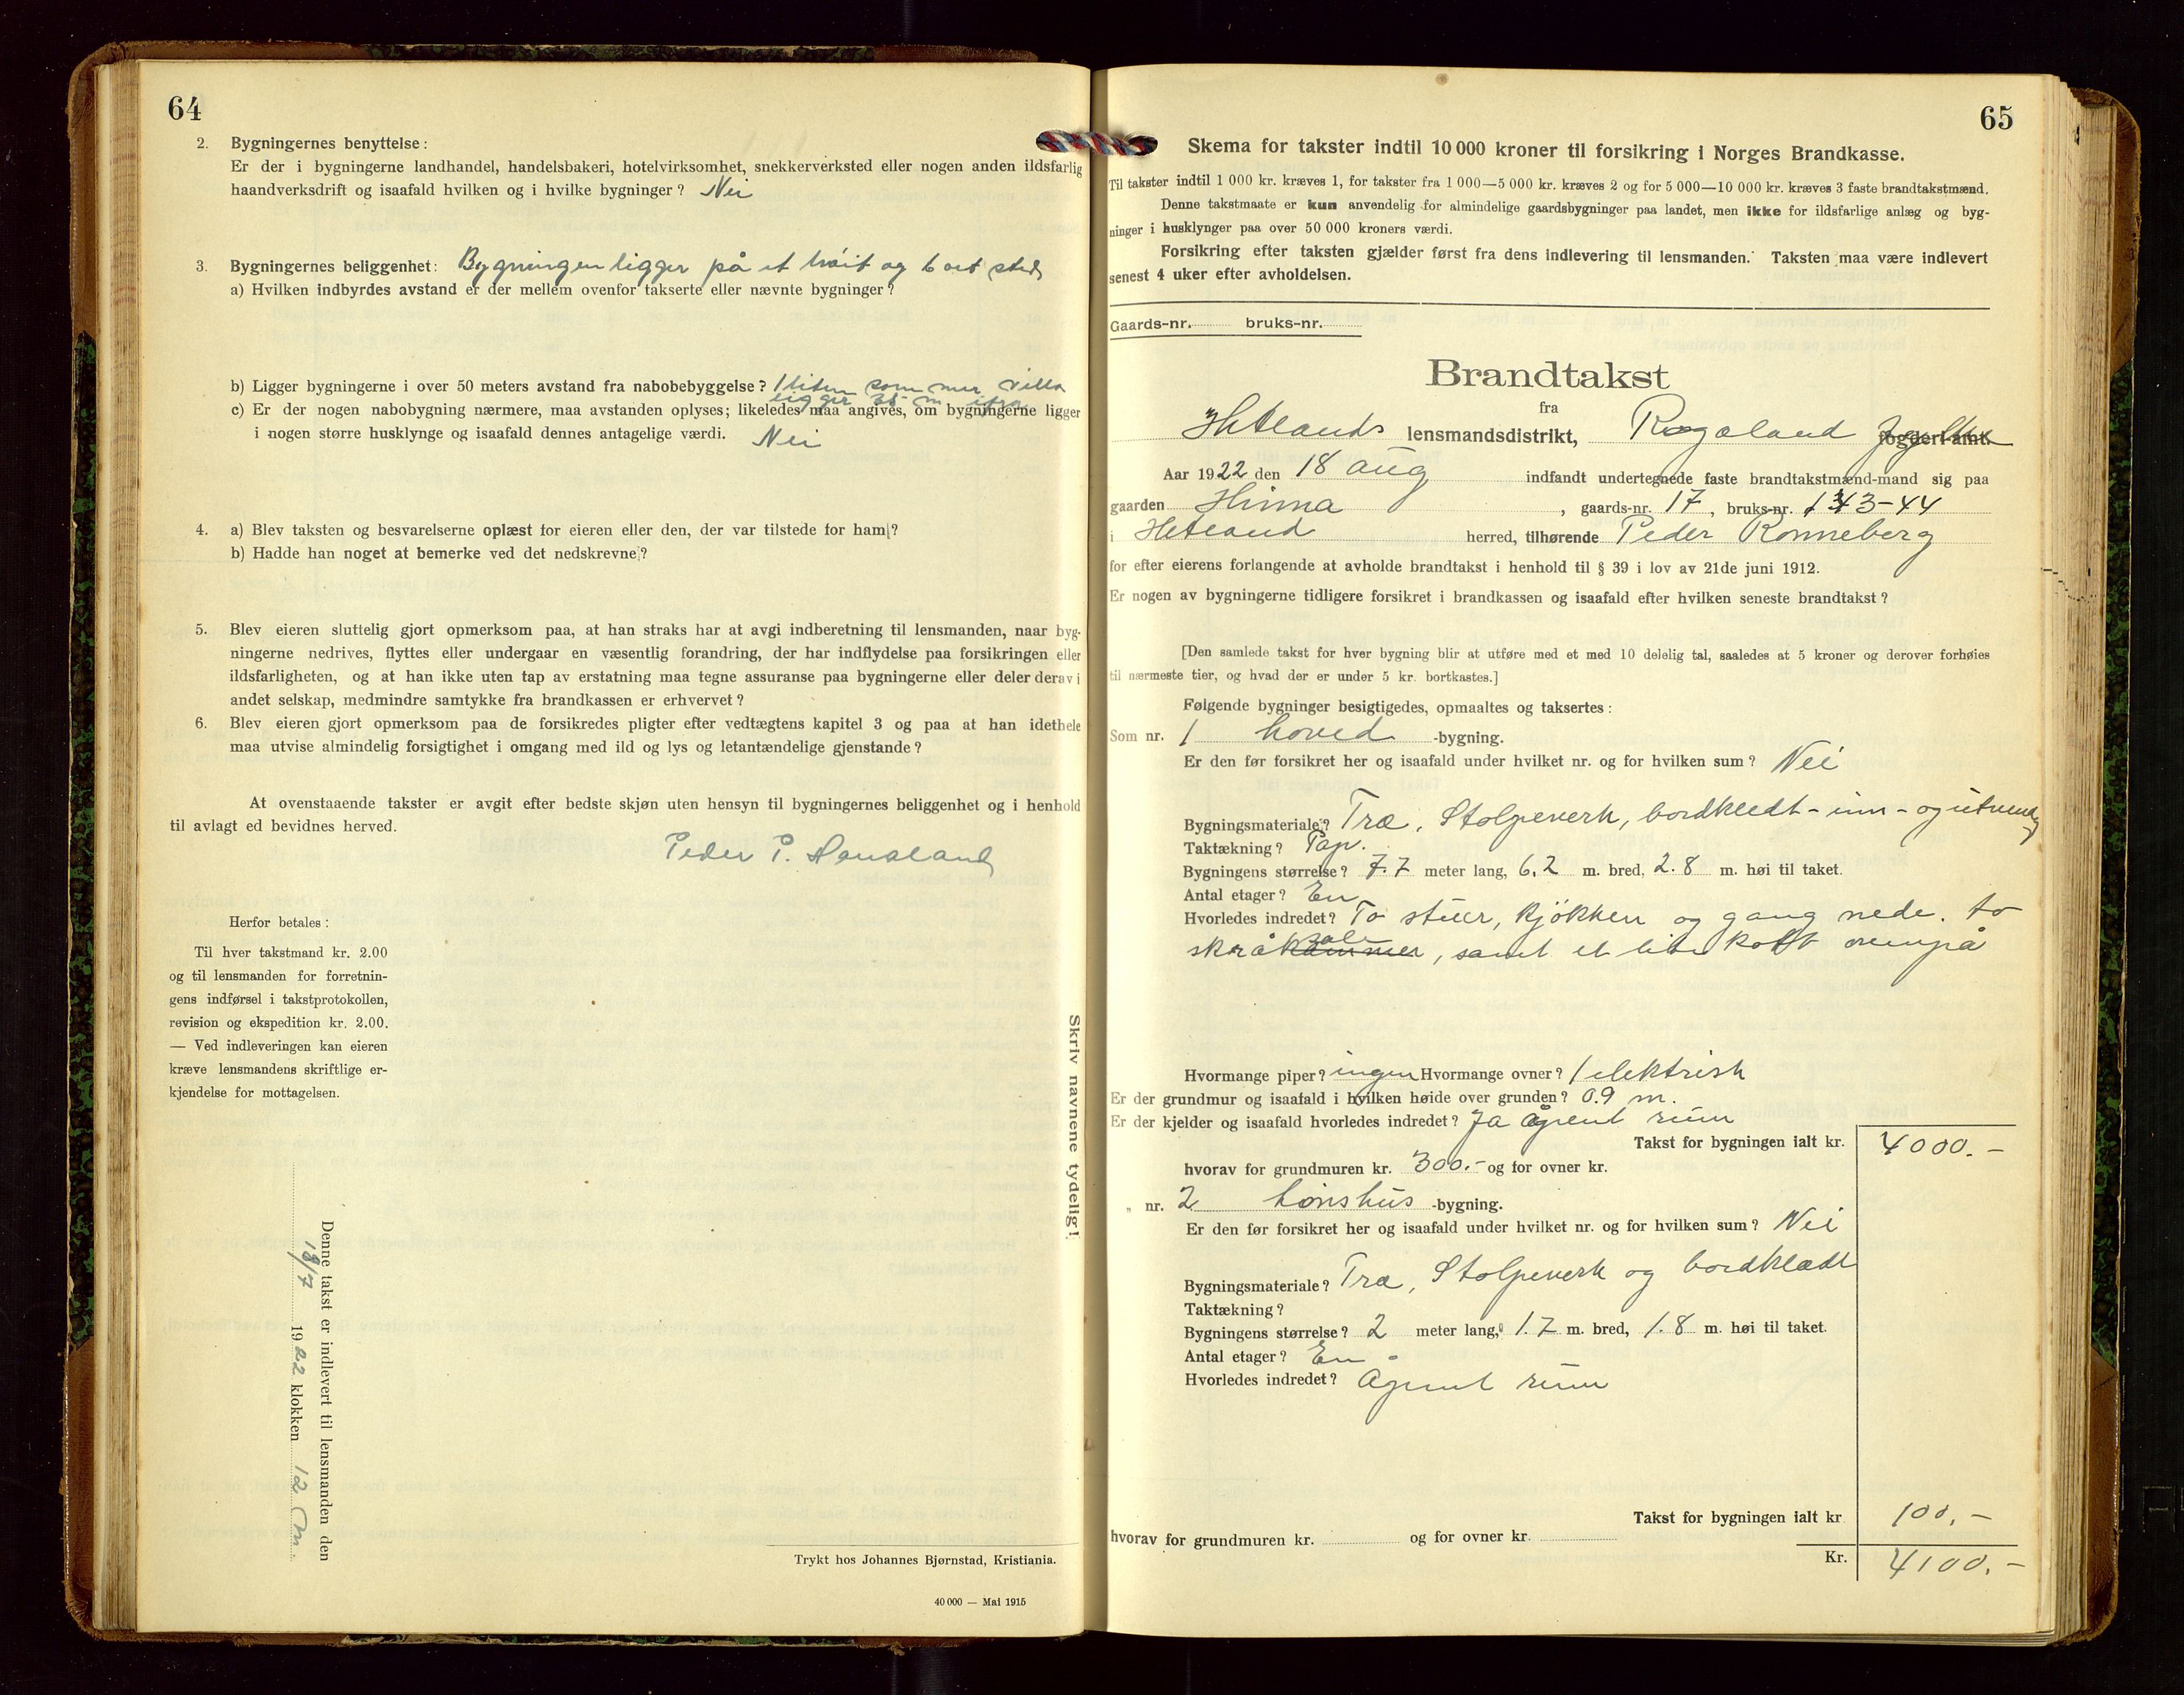 64
2. Bygningernes benyttelse:
Er der i bygningerne landhandel, handelsbakeri, hotelvirksomhet, snekkerverksted eller nogen anden ildsfarlig
haandverksdrift og isaafald hvilken og i hvilke bygninger? Nei
3. Bygningernes beliggenhet: Bygningen ligger på et høit og tørt sted
a) Hvilken indbyrdes avstand er der mellem ovenfor takserte eller nævnte bygninger?
b) Ligger bygningerne i over 50 meters avstand fra nabobebyggelse? 1 liten sommer villa
ligger 35 m ifra
c) Er der nogen nabobygning nærmere, maa avstanden oplyses; likeledes maa angives, om bygningerne ligger
i nogen større husklynge og isaafald dennes antagelige værdi. Nei
4. a) Blev taksten og besvarelserne oplæst for eieren eller den, der var tilstede for ham?
b) Hadde han noget at bemerke ved det nedskrevne?
5. Blev eieren sluttelig gjort opmerksom paa, at han straks har at avgi indberetning til lensmanden, naar byg-
ningerne nedrives, flyttes eller undergaar en væsentlig forandring, der har indflydelse paa forsikringen eller
ildsfarligheten, og at han ikke uten tap av erstatning maa tegne assuranse paa bygningerne eller deler derav i
andet selskap, medmindre samtykke fra brandkassen er erhvervet?
6. Blev eieren gjort opmerksom paa de forsikredes pligter efter vedtægtens kapitel 3 og paa at han idethele
maa utvise almindelig forsigtighet i omgang med ild og lys og letantændelige gjenstande?
At ovenstaaende takster er avgit efter bedste skjøn uten hensyn til bygningernes beliggenhet og i henhold
til avlagt ed bevidnes herved.
Peder P. Hausland
Herfor betales:
Til hver takstmand kr. 2.00
og til lensmanden for forretnin-
gens indførsel i takstprotokollen,
revision og ekspedition kr. 2.00.
— Ved indleveringen kan eieren
kræve lensmandens skriftlige er-
kjendelse for mottagelsen.
Denne takst er indlevert til lensmanden den
18/7 1922 klokken 12 m.
Skriv navnene tydelig!
Trykt hos Johannes Bjørnstad, Kristiania.
40 000 — Mai 1915
65
Skema for takster indtil 10 000 kroner til forsikring i Norges Brandkasse.
Til takster indtil 1 000 kr. kræves 1, for takster fra 1 000—5 000 kr. kræves 2 og for 5 000—10 000 kr. kræves 3 faste brandtakstmænd.
Denne takstmaate er kun anvendelig for almindelige gaardsbygninger paa landet, men ikke for ildsfarlige anlæg og byg-
ninger i husklynger paa over 50 000 kroners værdi.
Forsikring efter taksten gjælder først fra dens indlevering til lensmanden. Taksten maa være indlevert
senest 4 uker efter avholdelsen.
Gaards-nr. bruks-nr.
Brandtakst
fra
Hetlands lensmandsdistrikt, Rogaland fogderi-amt.
Aar 1922 den 18 aug indfandt undertegnede faste brandtakstmænd-mand sig paa
gaarden Hinna, gaards-nr. 17, bruks-nr. 43-44
i Hetland herred, tilhørende Peder Rønneberg
for efter eierens forlangende at avholde brandtakst i henhold til § 39 i lov av 21de juni 1912.
Er nogen av bygningerne tidligere forsikret i brandkassen og isaafald efter hvilken seneste brandtakst?
[Den samlede takst for hver bygning blir at utføre med et med 10 delelig tal, saaledes at 5 kroner og derover forhøies
til nærmeste tier, og hvad der er under 5 kr. bortkastes.]
Følgende bygninger besigtigedes, opmaaltes og taksertes:
Som nr. 1 hoved -bygning.
Er den før forsikret her og isaafald under hvilket nr. og for hvilken sum? Nei
Bygningsmateriale? Træ, Stolpeverk, bordkledt - inn - og utvendig
Taktækning? Pap.
Bygningens størrelse? 7.7 meter lang, 6.2 m. bred, 2.8 m. høi til taket.
Antal etager? En
Hvorledes indredet? To stuer, kjøkken og gang nede. to
skråkammer, samt et lite kott ovenpå
Hvormange piper? ingen Hvormange ovner? 1 elektrisk
Er der grundmur og isaafald i hvilken høide over grunden? 0.9 m.
Er der kjelder og isaafald hvorledes indredet? Ja åpent rum
Takst for bygningen ialt kr. 4000.-
hvorav for grundmuren kr. 300.- og for ovner kr.
" nr. 2 hønshus -bygning.
Er den før forsikret her og isaafald under hvilket nr. og for hvilken sum? Nei
Bygningsmateriale? Træ, Stolpeverk og bordklædt
Taktækning?
Bygningens størrelse? 2 meter lang, 1.7 m. bred, 1.8 m. høi til taket.
Antal etager? En -
Hvorledes indredet? Åpent rum
Takst for bygningen ialt kr 100.-
hvorav for grundmuren kr. og for ovner kr.
Kr. 4100.-